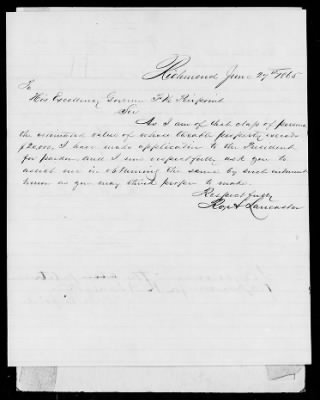 Richmond June 27th 1865
To
His Excellency Governor F H Pierpoint
Sir
As I am of that class of persons
the estimated value of whose taxable property exceeds
$20,000, I have made application to the President
for pardon, and I now respectfully ask you to
assist me in obtaining the same by such
as you may think proper to make.
Respectfully
Robt A Lancaster